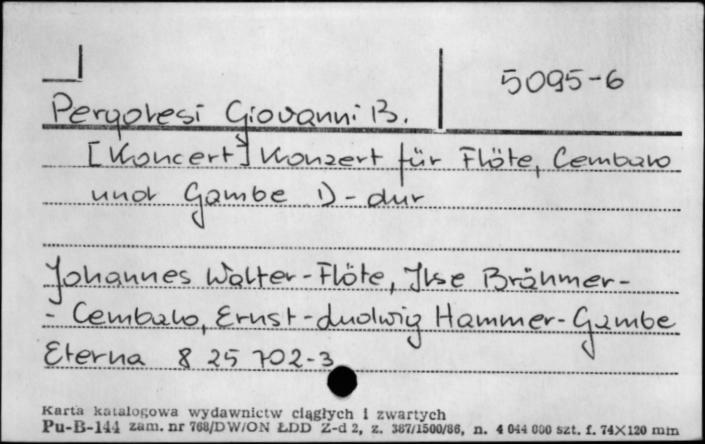 5095-6
Pergolesi Giovanni B.
[Koncert] Konzert für Flöte, Cembalo
und Gambe D-dur
Johannes Walter-Flöte, Ilse Brähmer-
- Cembalo, Ernst-Ludwig Hammer-Gambe
Eterna 8 25 702-3
Karta katalogowa wydawnictw ciągłych i zwartych
Pu-B-144 zam. nr 768/DW/ON ŁDD Z-d 2, z. 387/1500/86, n. 4 044 000 szt. f. 74X120 mm